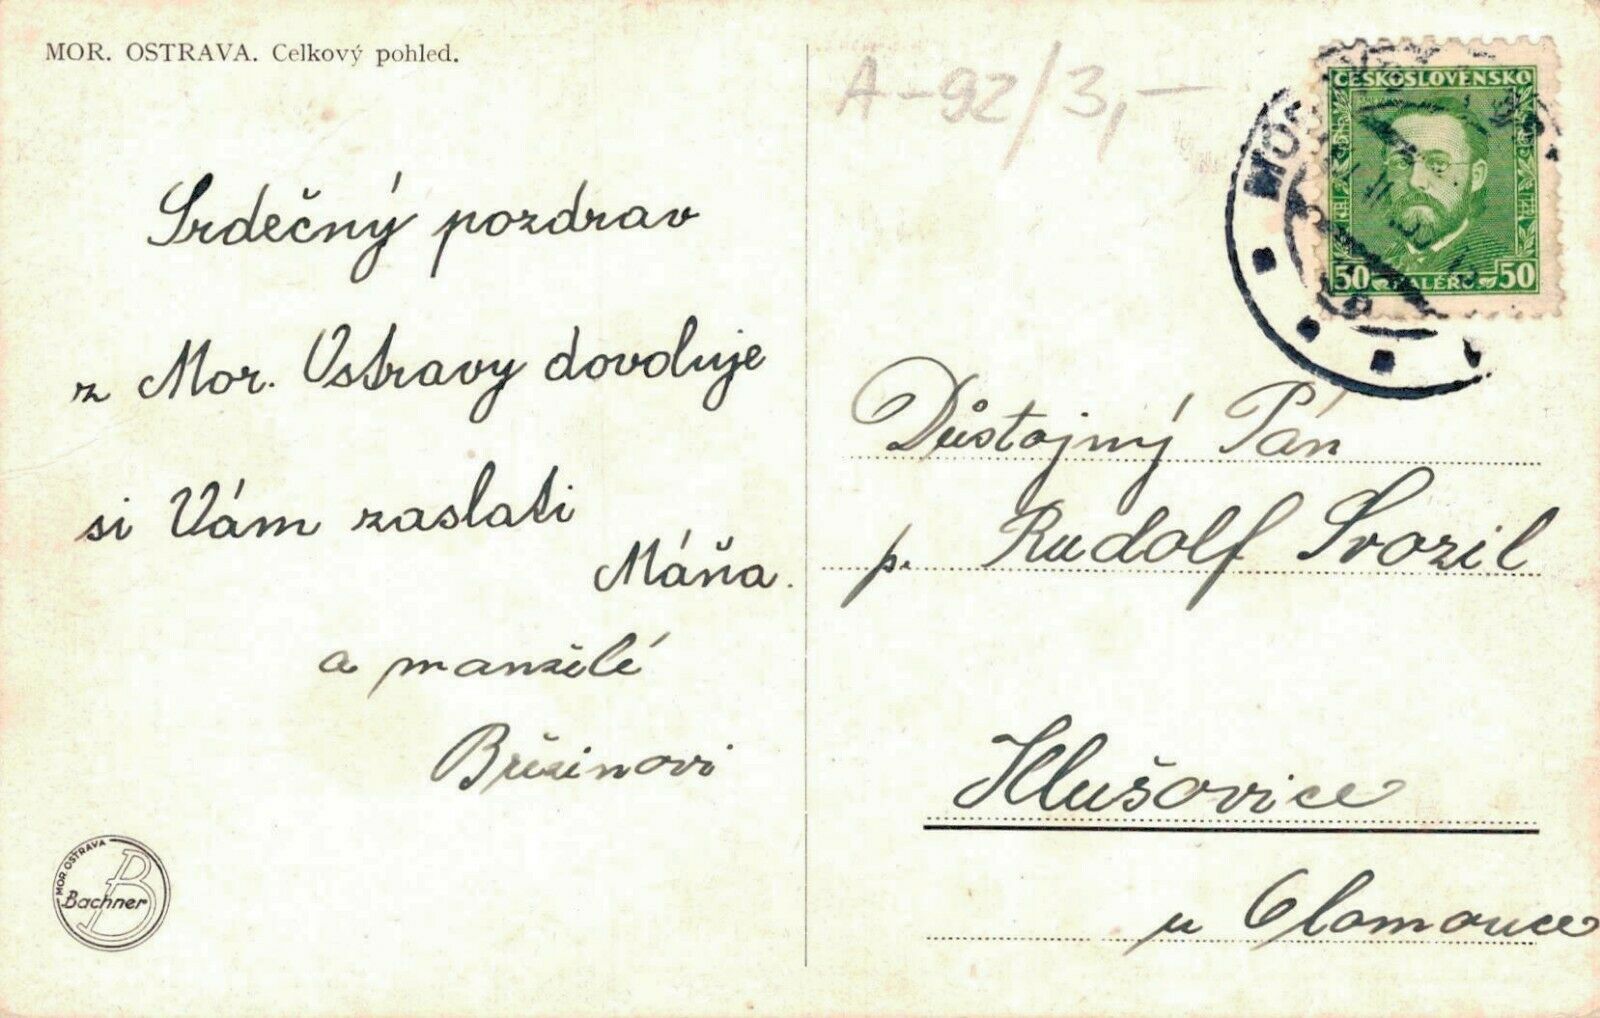 MOR. OSTRAVA. Celkový pohled.
Srdečný pozdrav
z Mor. Ostravy dovoluje
si Vám zaslati
Máňa.
a manželé
Březinovi
MOR. OSTRAVA
Bachner
A-92/3,-
ČESKOSLOVENSKO
50 HALÉŘŮ 50
Důstojný Pán
p. Rudolf Svozil
Hlušovice
u Olomouce